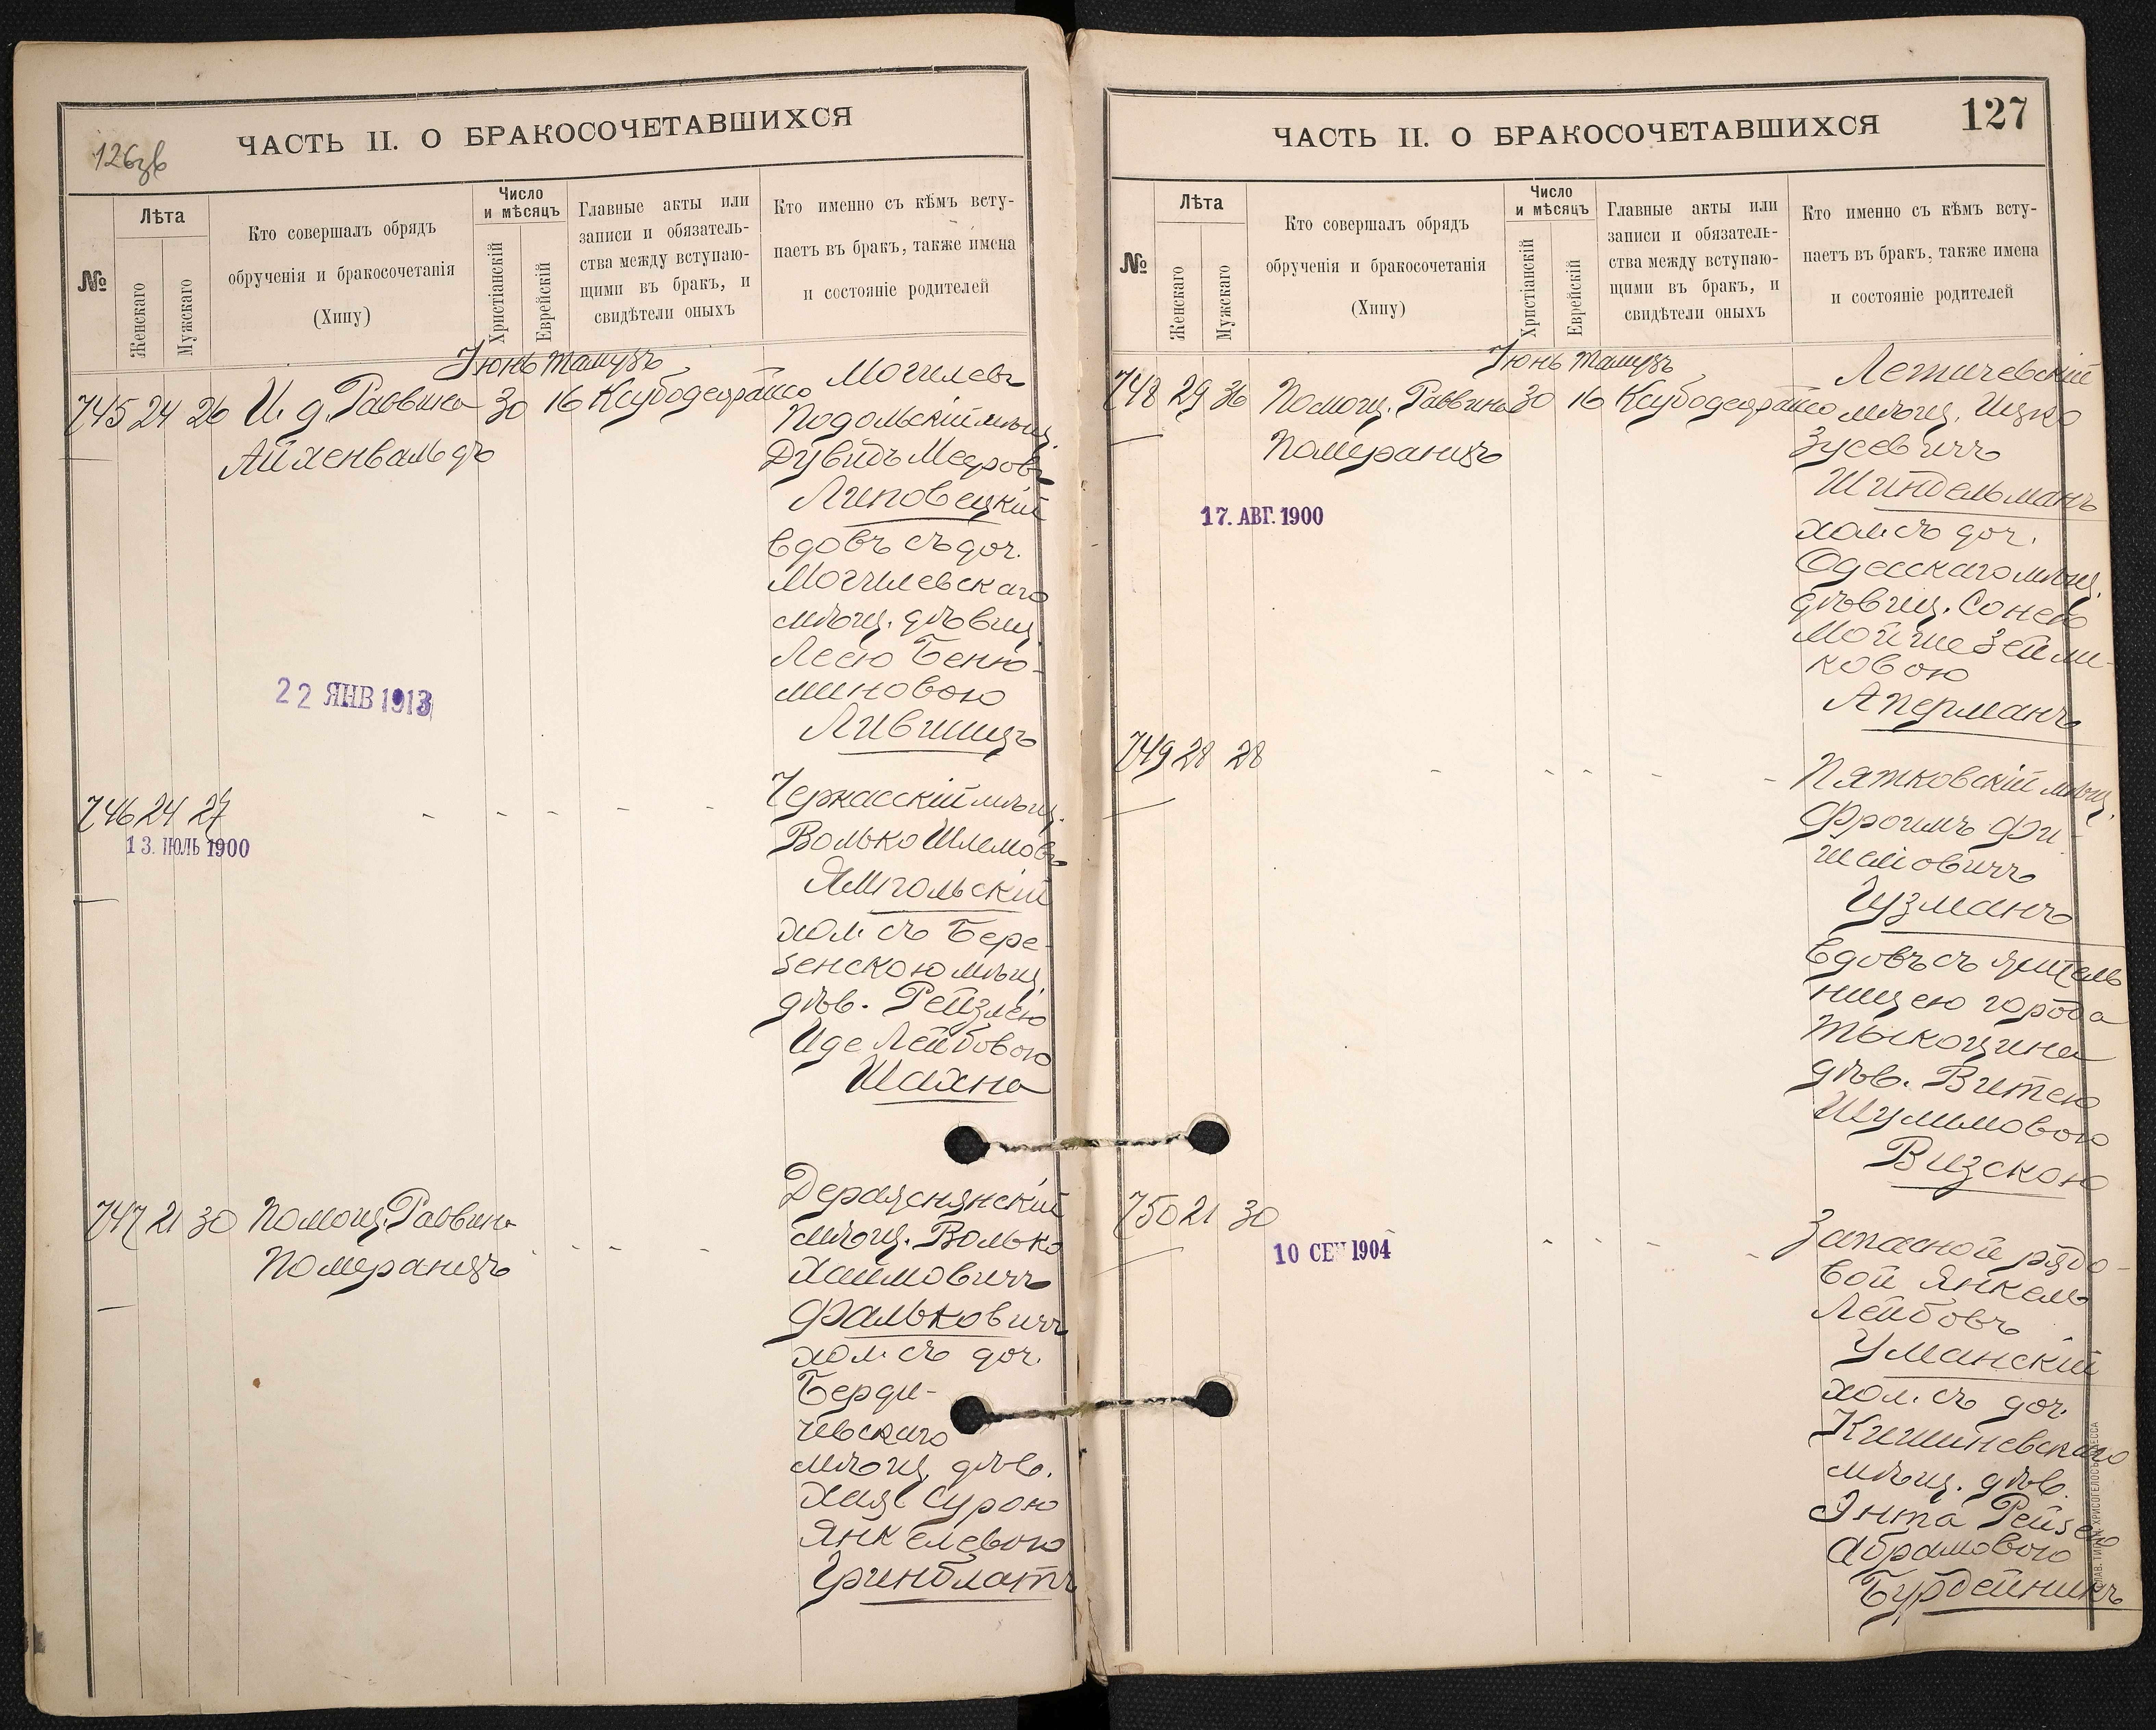 126зв
ЧАСТЬ II. О БРАКОСОЧЕТАВШИХСЯ
№
Лѣта
Женскаго
Мужскаго
Кто совершалъ обрядъ
обрученія и бракосочетанія
(Хипу)
Число
и мѣсяцъ
Христіанскій
Еврейскій
Главные акты или
записи и обязатель-
ства между вступаю-
щими въ бракъ, и
свидѣтели оныхъ
Кто именно съ кѣмъ всту-
паетъ въ бракъ, также имена
и состояніе родителей
Іюнь Тамузъ
745 24 26 И. д. Раввина 30 16
Айхенвальдъ
Могилевъ
Подольскій мѣщ.
Дувидъ Мееровъ
Липовецкій
вдовъ съ доч.
Могилевскаго
мѣщ. дѣвиц.
Леею Беню-
миновою
Лившицъ
22 ЯНВ 1913
746 24 27 - - - - -
13. ІЮЛЬ 1900
Черкасскій мѣщ.
Волько Шлемовъ
Ямпольскій
хол. съ Бере-
зенскою мѣщ.
дѣв. Рейзлею
Иде Лейбовою
Шахна
747 21 30 Помощ. Раввина - - - -
Померанцъ
Деражнянскій
мѣщ. Волько
Хаимовичъ
Фальковичъ
хол. съ доч.
Берди-
чевскаго
мѣщ. дѣв.
Хая Сурою
Янкелевою
Гринблатъ
127
ЧАСТЬ II. О БРАКОСОЧЕТАВШИХСЯ
№
Лѣта
Женскаго
Мужскаго
Кто совершалъ обрядъ
обрученія и бракосочетанія
(Хипу)
Число
и мѣсяцъ
Христіанскій
Еврейскій
Главные акты или
записи и обязатель-
ства между вступаю-
щими въ бракъ, и
свидѣтели оныхъ
Кто именно съ кѣмъ всту-
паетъ въ бракъ, также имена
и состояніе родителей
Іюнь Тамузъ
748 29 36 Помощ. Раввина 30 16
Померанцъ
17. АВГ. 1900
Летичевскій
мѣщ. Ицко
Зусевичъ
Шиндельманъ
хол. съ доч.
Одесскаго мѣщ.
дѣвиц. Сонею
Мойше Зейли-
ковою
Аперманъ
749 28 28 - - - - -
Пятковскій мѣщ.
Фроимъ Фи-
шелiовичъ
Гузманъ
вдовъ съ житель
ницею города
Тыкоцина
дѣв. Витею
Шулимовою
Визскою
750 21 30 - - - -
10 СЕН 1904
Запасной рядо-
вой Янкель
Лейбовъ
Уманскій
хол. съ доч.
Кишиневскаго
мѣщ. дѣв.
Энта Рейзею
Абрамовою
Бурдейникъ